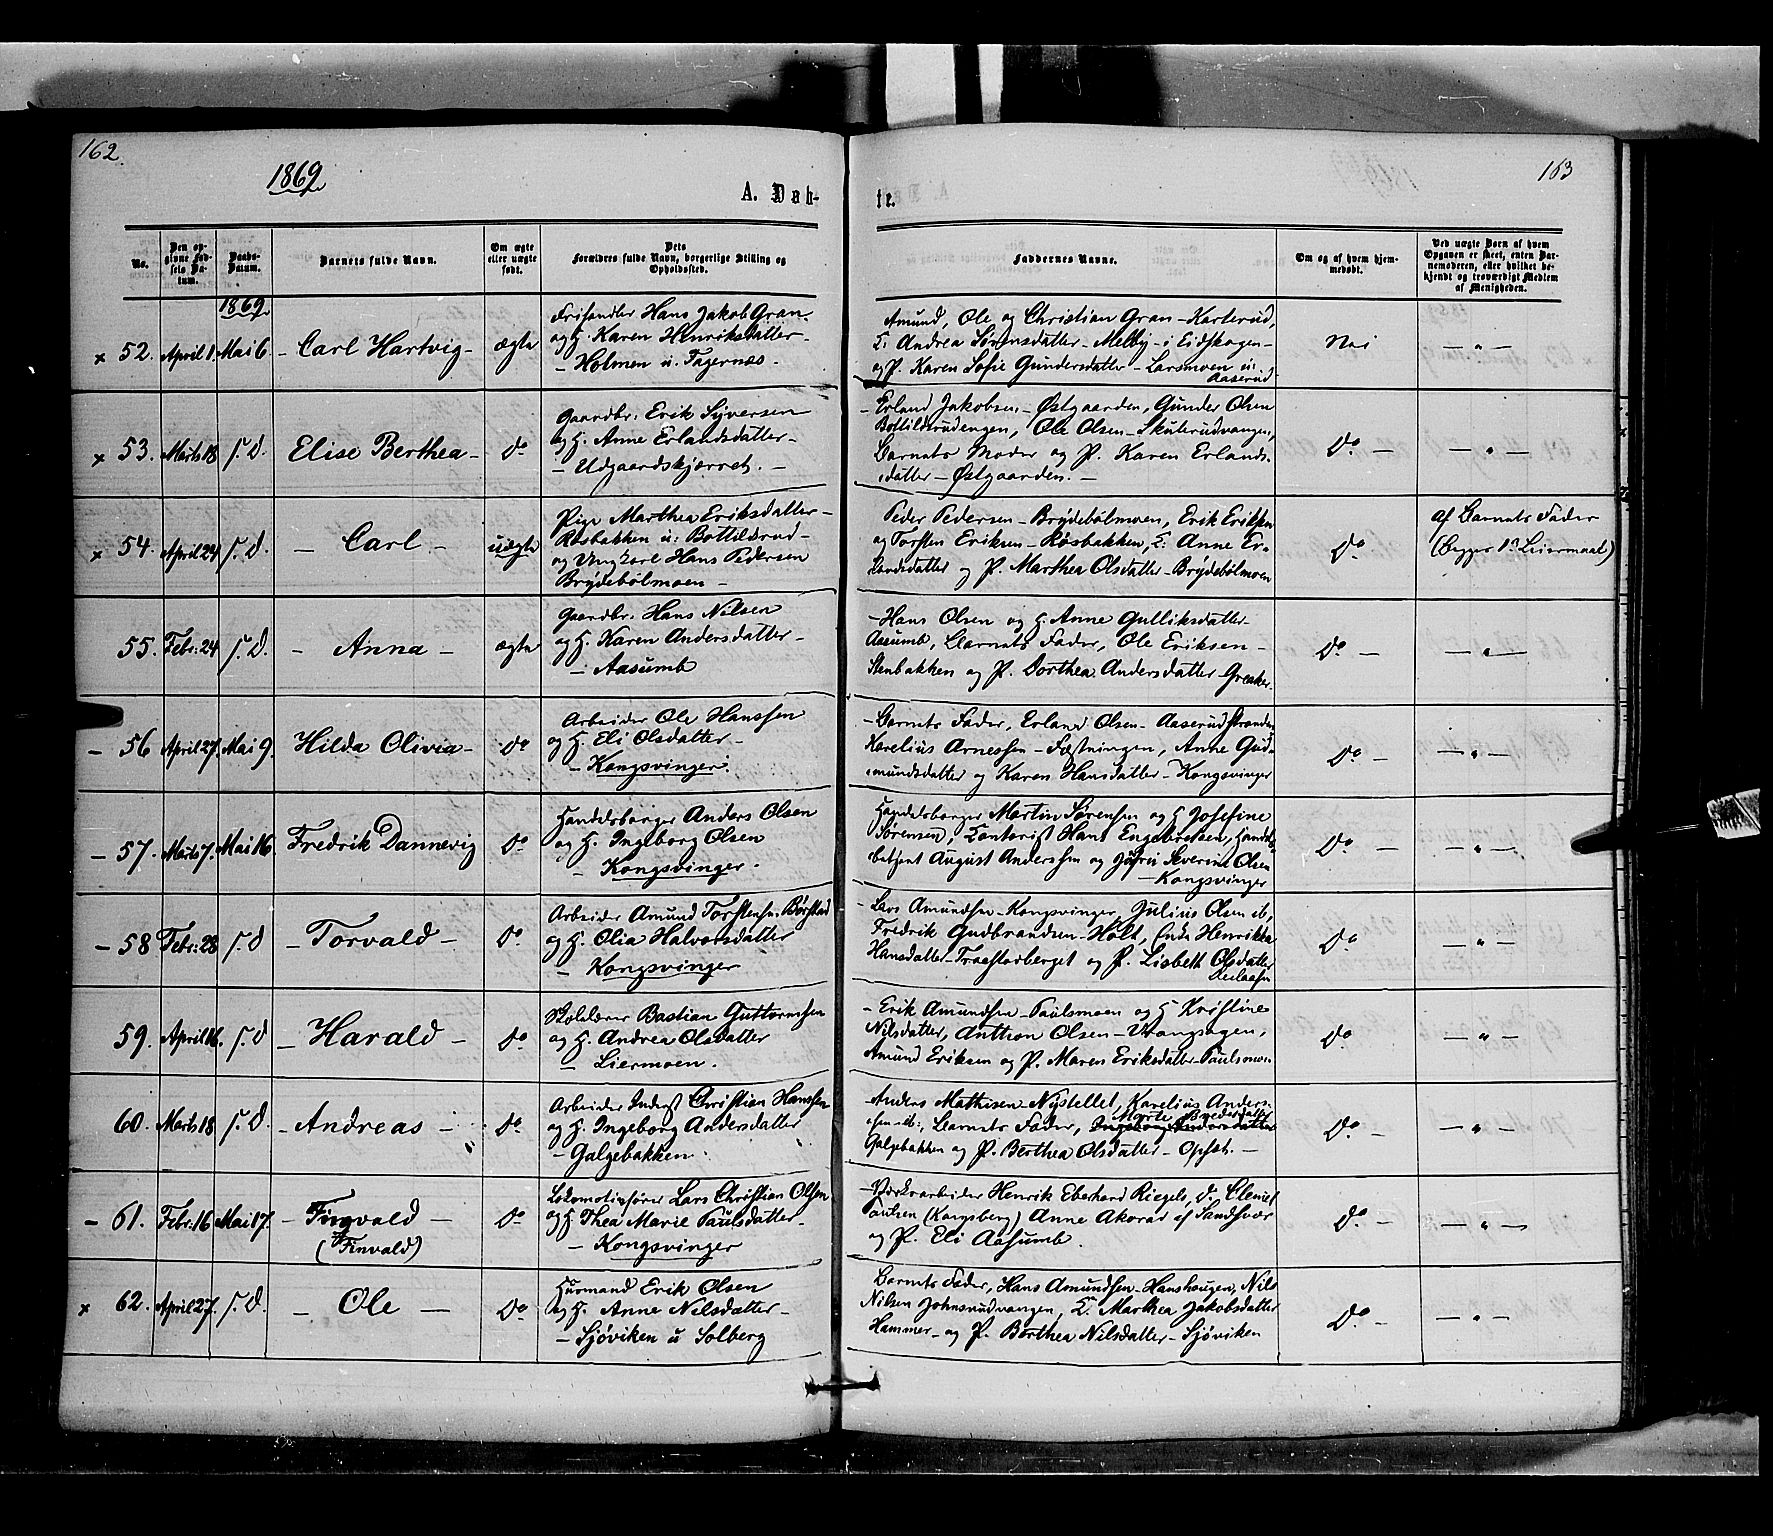 162.
1869
A. Dåb-
te.
163
No.
Den op-
givne Fød-
sels Da-
tum.
Daabs-
Datum.
Barnets fulde Navn.
Om ægte
eller uægte
født.
Dets
Forældres fulde Navn, borgerlige Stilling og
Opholdssted.
Faddernes Navne.
Om og af hvem hjem-
medøbt.
Ved uægte Børn af hvem
Opgaven er skeet, enten Bar-
nemoderen, eller hvilket be-
kjendt og troværdigt Medlem
af Menigheden.
1869
x 52. April 1 Mai 6. - Carl Hartvig - ægte
Frihandler Hans Jakob Gran.
og H. Karen Henriksdatter -
- Holmen u. Tagernæs -
Amund, Ole og Christian Gran - Karterud,
K. Andrea Sørensdatter - Melby - i Eidskogen -
og P. Karen Sofie Gundersdatter - Larsmoen u.
Aaserud
Nei
- " -
x 53. Marts 18 s. D. Elise Berthea - do
Gaardbr. Erik Syversen
og H. Anne Erlandsdatter -
- Udgaardskjærret. -
- Erland Jakobsen - Østgaarden, Gunder Olsen
Bottildsrudengen, Ole Olsen - Skuterudvangen,
Barnets Moder og P. Karen Erlands-
datter - Østgaarden. -
do -
- " -
x 54. April 24 s. D. - Carl - uægte
Pige Marthea Eriksdatter -
Røsbakken u: Bottildsrud -
og Ungkarl Hans Pedersen
Brydebølmoen -
Peder Pedersen - Brydebølmoen, Erik Eriksen
og Torsten Eriksen - Røsbakken, K. Anne Er-
landsdatter og P. Marthea Olsdatter - Brydebølmoen
do
af Barnets Fader
(Begges 1ste Leiermaal)
55. Febr. 24 s. D. - Anna - ægte
Gaardbr. Hans Nilsen
og H. Karen Andersdatter -
- Aasumb
- Hans Olsen og H. Anne Gulliksdatter -
Aasumb, Barnets Fader, Ole Eriksen -
Stenbakken og P. Dorthea Andersdatter - Greaker.
do -
- " -
- 56 April 27. Mai 9. Hilda Olivia - do
Arbeider Ole Hanssen
og H. Eli Olsdatter -
- Kongsvinger.
- Barnets Fader, Erland Olsen - Aaserudstranden
Karelius Arnessen - Fæstningen, Anne Gud-
mundsdatter og Karen Hansdatter - Kongsvinger
do -
- " -
- 57. Marts 7. Mai 16. Fredrik Dannevig do
Handelsborger Anders Olsen
og H. Ingeborg Olsen
- Kongsvinger.
Handelsborger Martin Sørensen og H Josefine
Sørensen, Kontorist Hans Engebretsen, Handels-
betjent August Anderssen og Jfru Severine Olsen
- Kongsvinger
do -
- " -
- 58 Febr. 28 s. D - Torvald - do
Arbeider Amund Torstensen Børstad
og H. Olia Halvorsdatter
- Kongsvinger
- Lars Amundsen - Kongsvinger, Julius Olsen ib,
Fredrik Gudbrandsen - Holt, Enke Henrikka
Hansdatter - Træftorberget og P. Lisbeth Olsdatter
do
- " -
59. April 16. s. D - Harald - do
Skolelærer Bastian Guttormsen
og H. Andrea Olsdatter
- Liermoen.
- Erik Amundsen - Paulsmoen og H Kristine
Nilsdatter, Anthon Olsen - Vrangsagen,
Amund Eriksen og P. Maren Eriksdatter - Paulsmoen
do
- " -
60. Marts 18 s. D. - Andreas - do
Arbeider Inderst Christian Hanssen
og H. Ingeborg Andersdatter
- Galgebakken.
- Anders Mathisen - Nystellet, Karelius Anders-
sen ib:, Barnets Fader, Ingeborg Andersdatter
Galgebakken og P. Berthea Olsdatter - Opset. -
do -
- " -
- 61. Febr. 16 Mai 17. - Fingvald - do
(Finvald)
Lokomotivfører Lars Christian Olsen
og H Thea Marie Paulsdatter -
- Kongsvinger
- Værkarbeider Henrik Eberhard Riegels, do Clemet
Paulsen (Kongsberg) Anne Akorar af Sandsvær
og P. Eli Aasumb.
do -
- " -
x 62. April 27. s. D. - Ole - do
Husmand Erik Olsen
og H. Anne Nilsdatter -
- Sjøviken u Solberg
Barnets Fader, Hans Amundsen - Hanshaugen, Nils
Nilsen Johnsrudvangen, K. Marthea Jakobsdatter
Hammer - og P. Berthea Nilsdatter - Sjøviken
do -
- " -